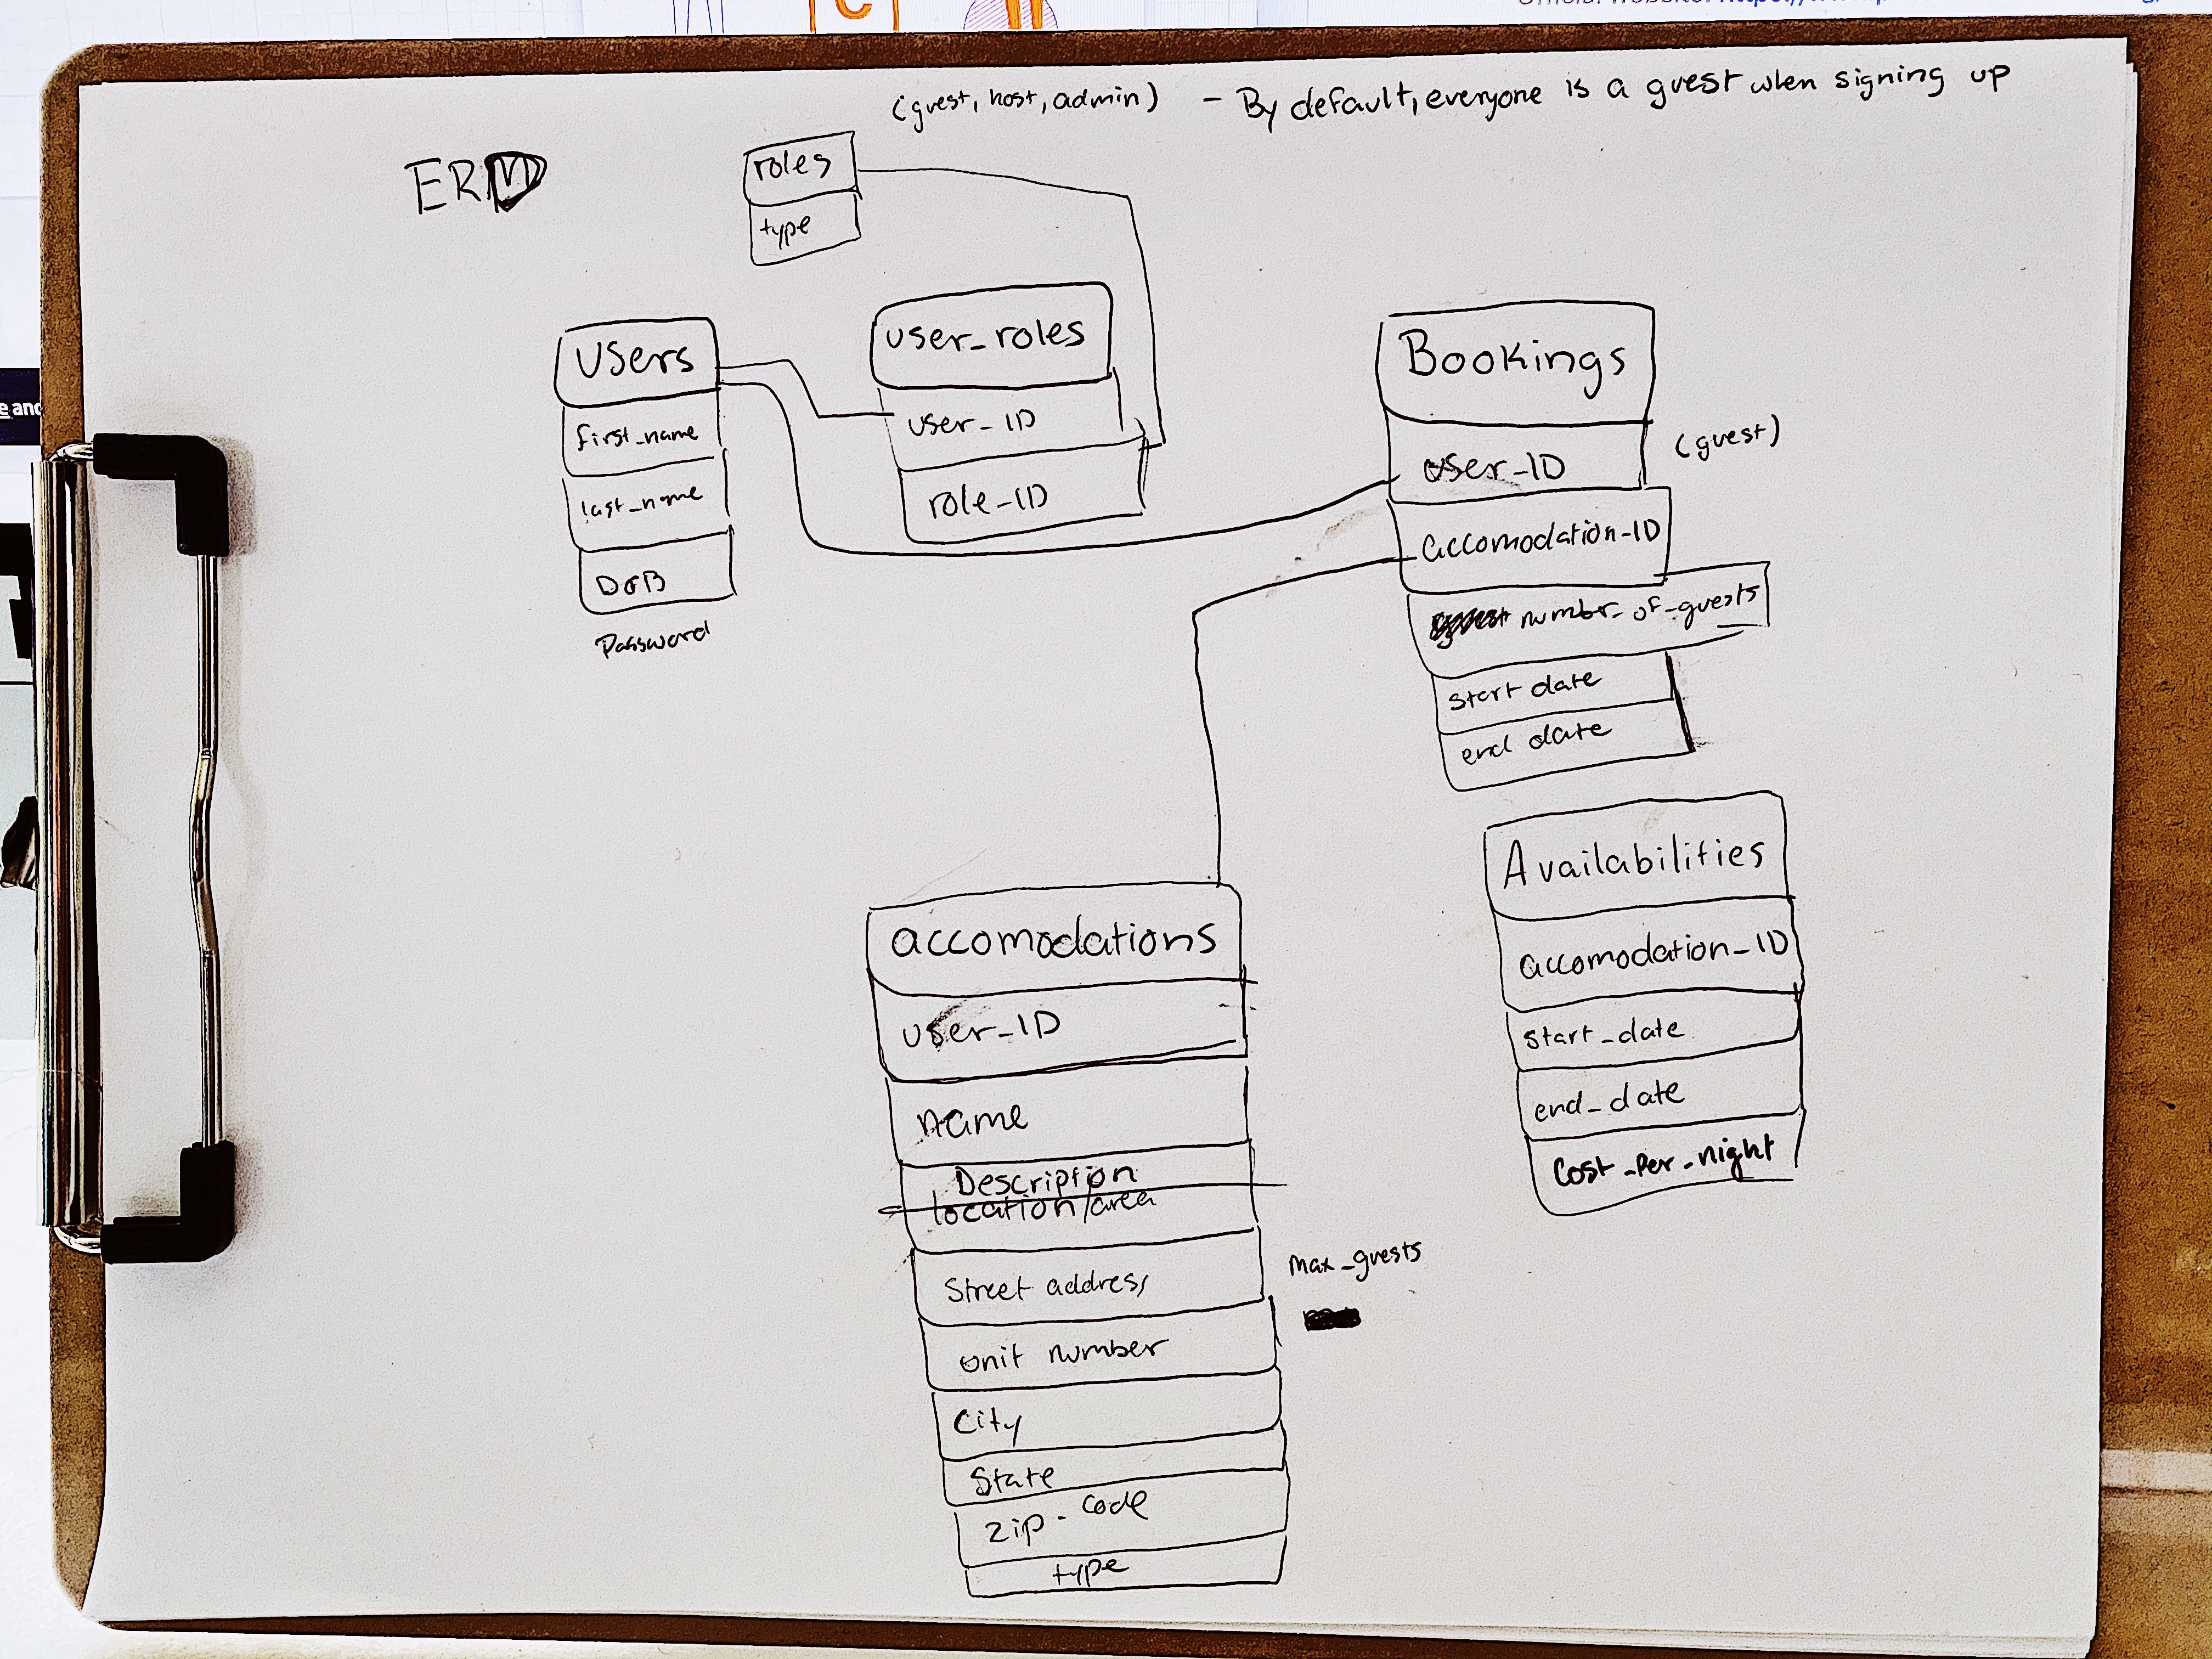 (guest, host, admin) - By default, everyone is a guest when signing up
ERD
roles
type
users
first_name
last_name
DOB
Password
user_roles
user_ID
role_ID
Bookings
user_ID
(guest)
accomodation-ID
number_of_guests
start date
end date
Availabilities
accomodation_ID
start_date
end_date
Cost_Per_night
accomodations
user_ID
name
Description
location/area
Street address
max_guests
unit number
City
State
zip-code
type
e and
C